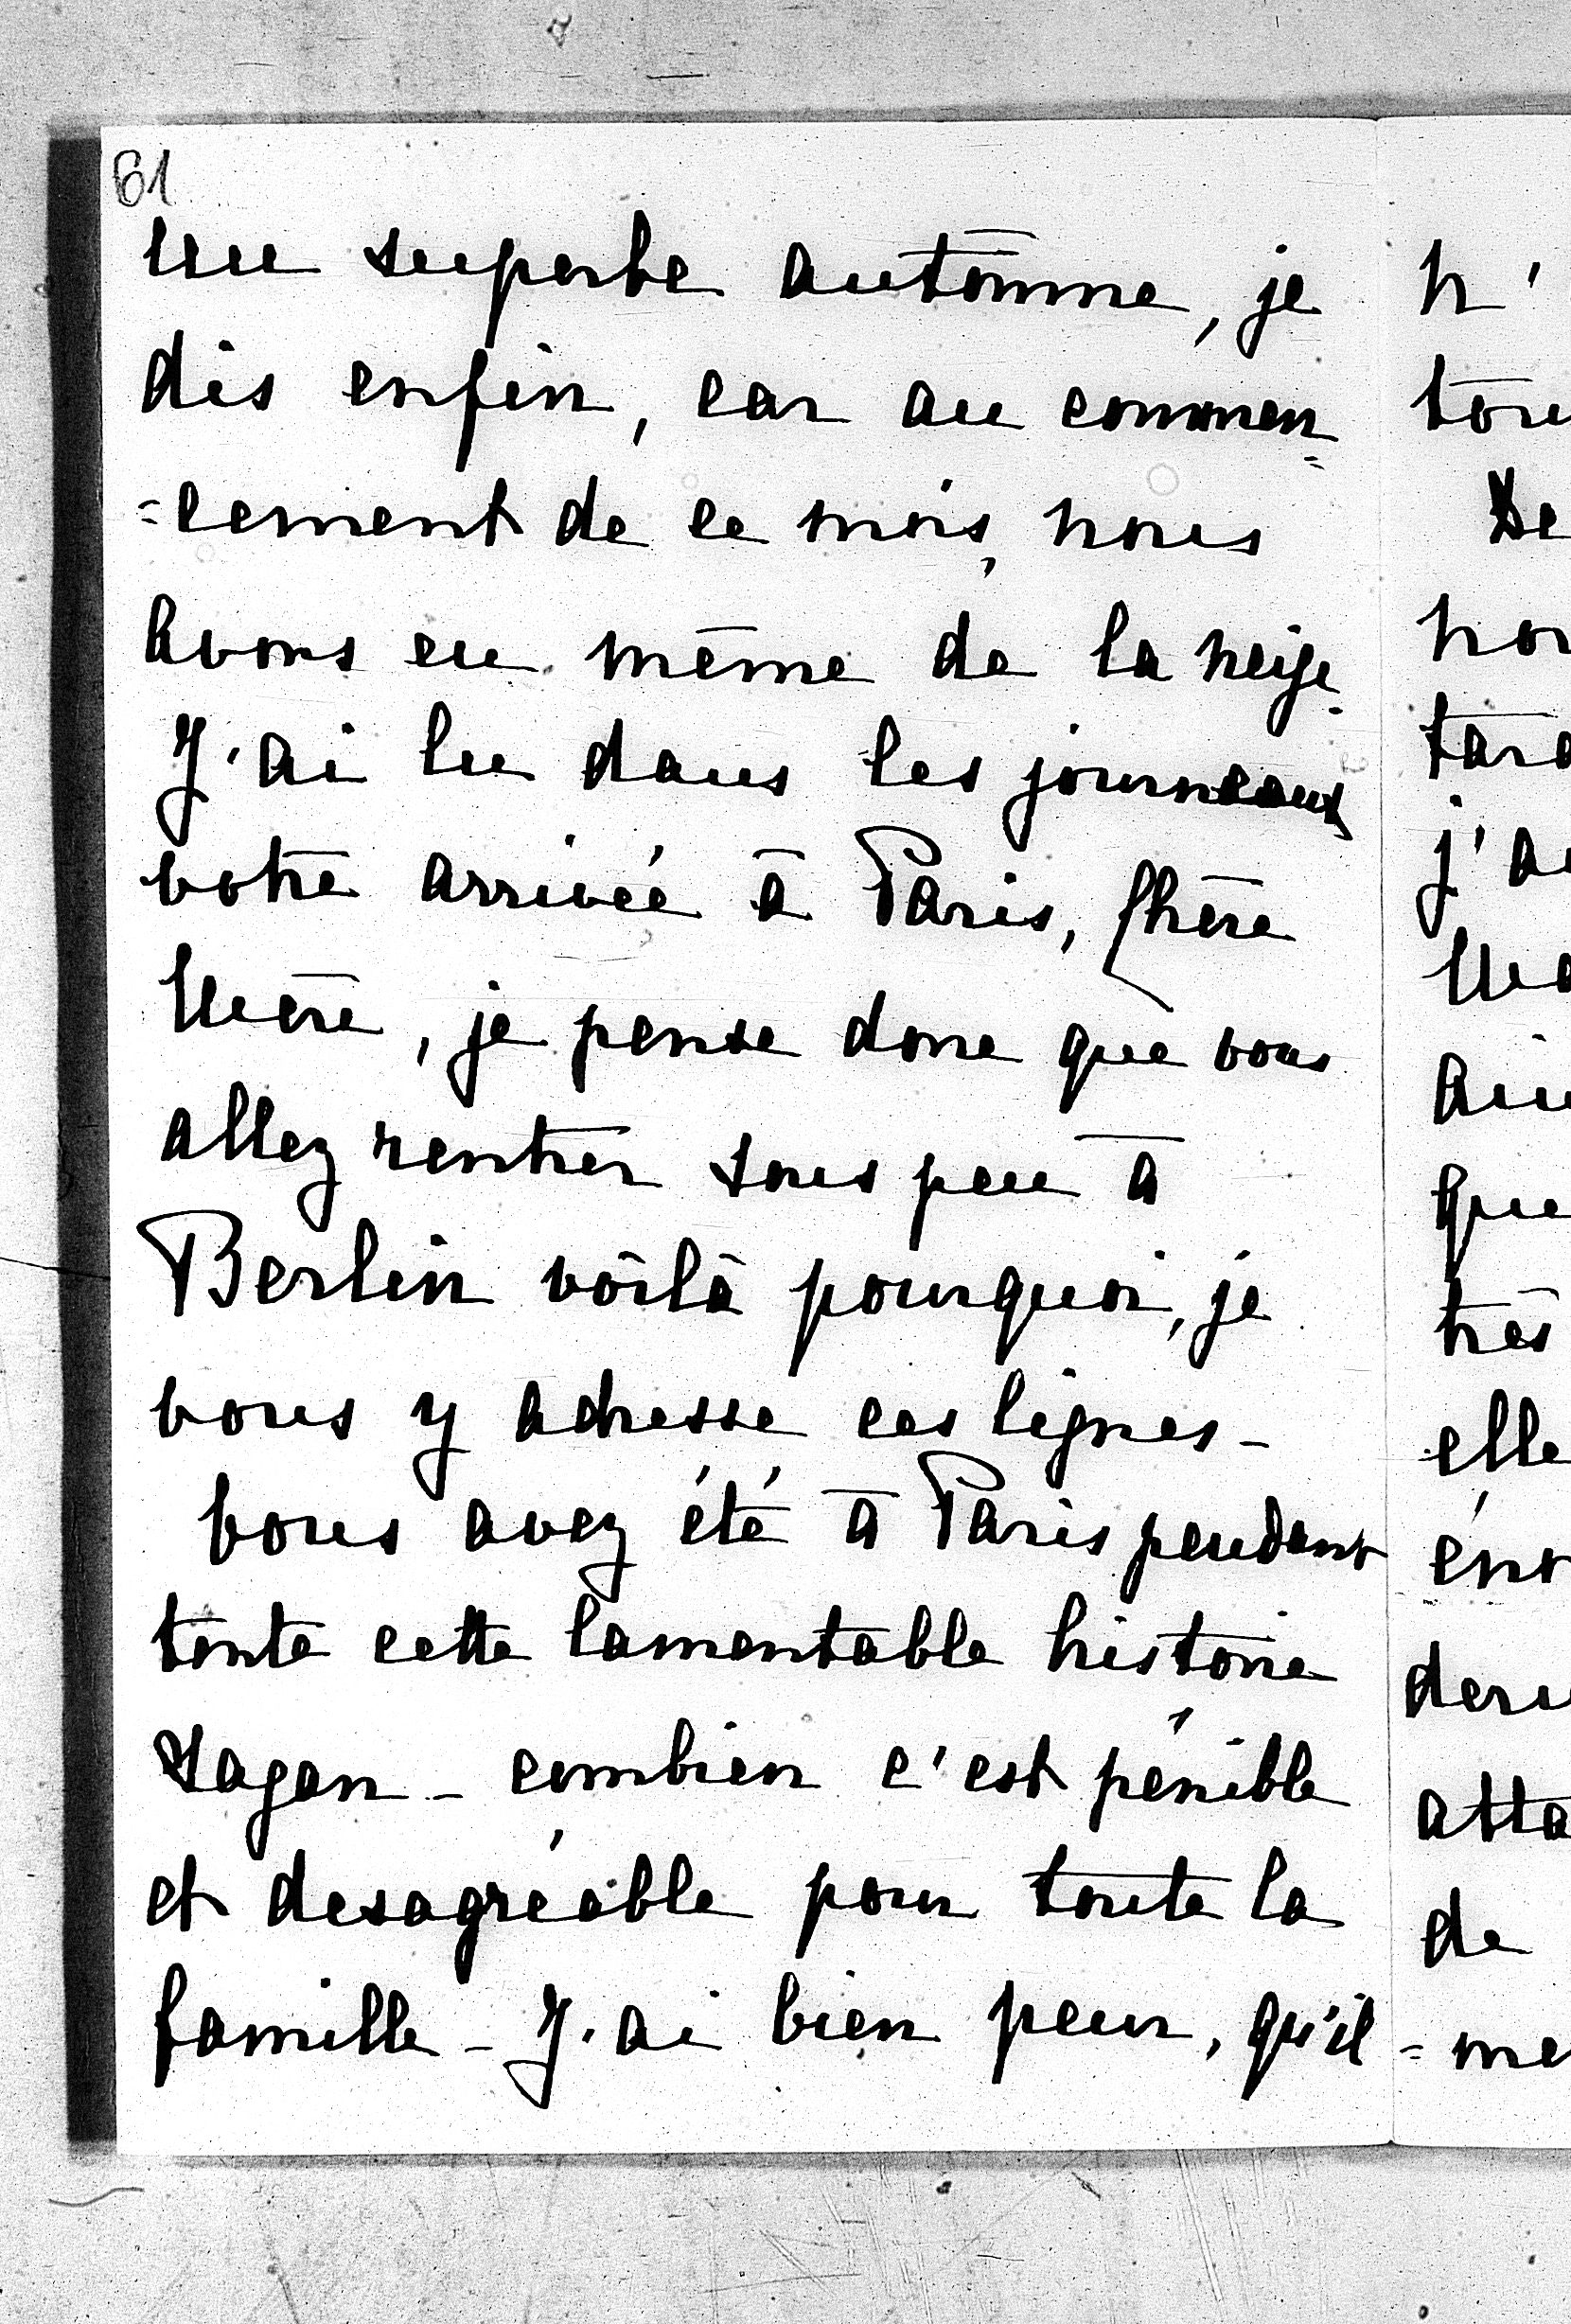 61
un superbe automne, je
dis enfin, car au commen
=cement de ce mois, nous
avons eu même de la neige.
J'ai lu dans les journeaux
votre arrivée à Paris, Chère
Mère, je pense donc que vous
allez rentrer sous peu à
Berlin voilà pourquoi, je
vous y adresse ces lignes -
Vous avez été à Paris pendant
toute cette lamentable histoire
Sagan - combien c'est pénible
et desagréable pour toute la
famille - J'ai bien peur, qu'il
n'
De
j'a
que
très
elle
de
=me